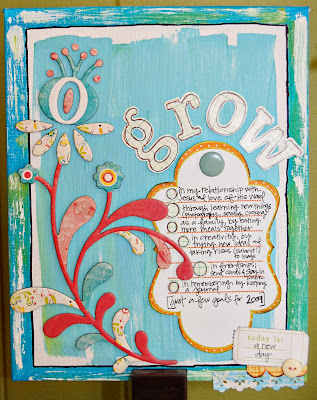 O
grow
in my relationship with
Jesus & love of His Word
through learning new things
(photography, sewing, cooking)
as a family, by eating
more meals together
in creativity, by
trying new ideas &
taking risks (submit!)
to mags
in friendships,
send cards & stay in
touch
in remembering by keeping
a journal
just a few goals for 2009
today is:
a new
day